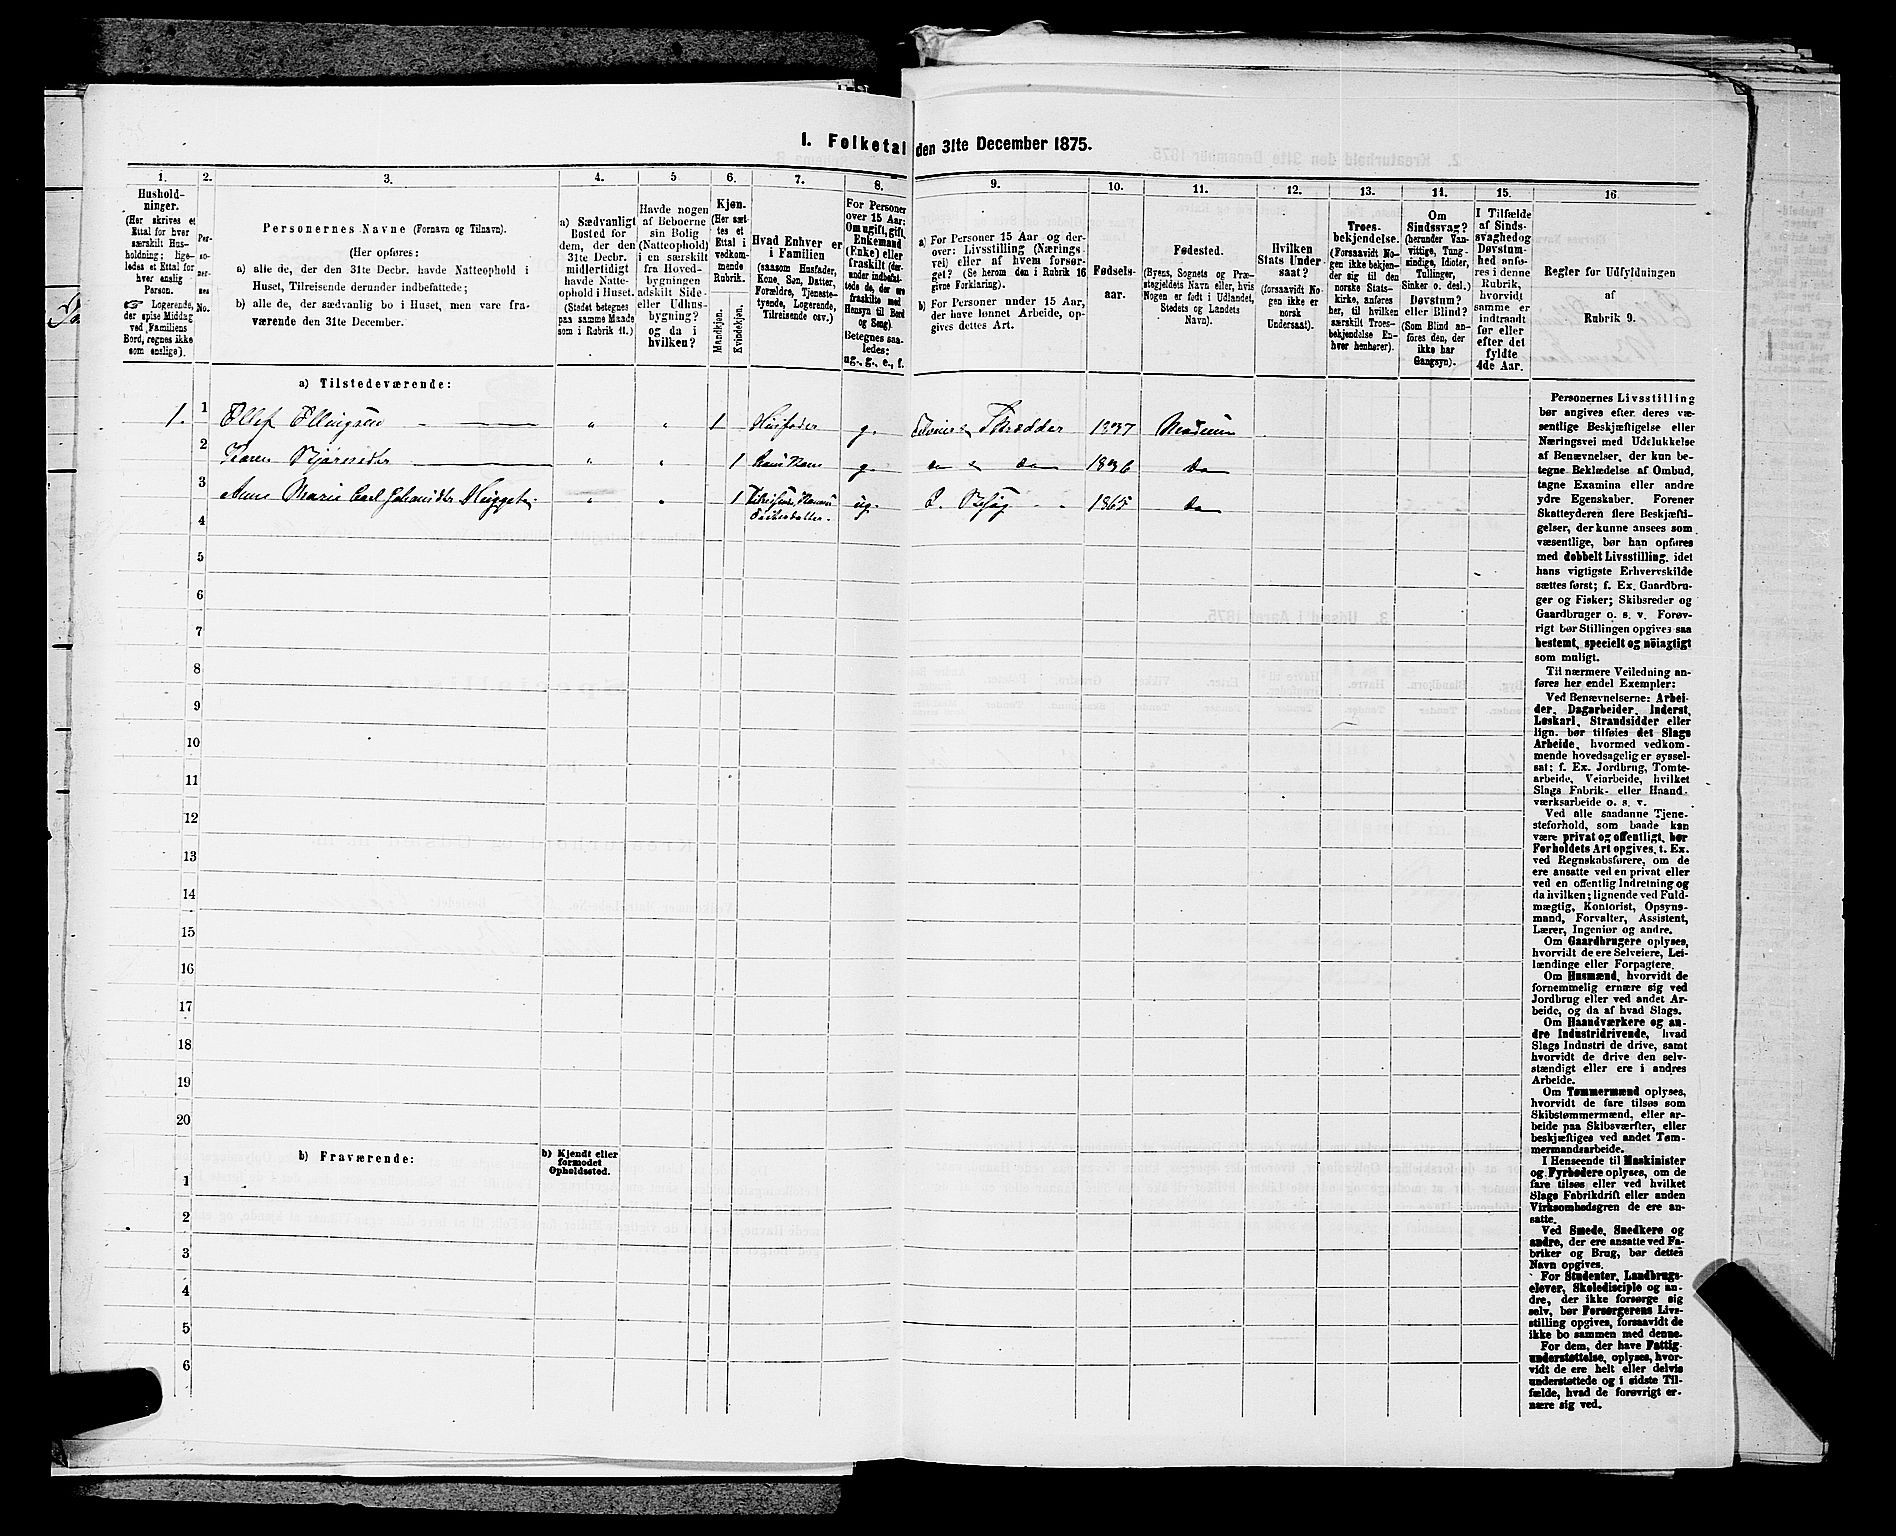 1. Folketal den 31te December 1875.
1.
2.
3.
4.
5
6.
7.
8.
9.
10.
11.
12.
13.
14.
15.
16
Hushold-
ninger.
(Her skrives et
Ettal for hver
særskilt Hus-
holdning; lige-
ledes et Ettal for
hver enslig
Person.
☞ Logerende,
der spise Middag
ved Familiens
Bord, regnes ikke
som enslige).
Per-
so-
ner-
nes
No.
Personernes Navne (Fornavn og Tilnavn).
(Her opføres:
a) alle de, der den 31te Decbr. havde Natteophold i
Huset, Tilreisende derunder indbefattede;
b) alle de, der sædvanlig bo i Huset, men vare fra-
værende den 31te December.
a) Sædvanligt
Bosted for
dem, der den
31te Decbr.
midlertidigt
havde Natte-
ophold i Huset.
(Stedet betegnes
paa samme Maade
som i Rubrik 11.)
Havde nogen
af Beboerne
sin Bolig
(Natteophold)
i en særskilt
fra Hoved-
bygningen
adskilt Side-
eller Udhus-
bygning?
og da i
hvilken?
Kjøn.
(Her sæt-
tes et
Ettal i
vedkom-
mende
Rubrik.
Mandkjøn.
Kvindekjøn.
Hvad Enhver er
i Familien
(saasom Husfader,
Kone, Søn, Datter,
Forældre, Tjeneste-
tyende, Logerende,
Tilreisende osv.)
For Personer
over 15 Aar:
Om ugift, gift,
Enkemand
(Enke) eller
fraskilt (der-
under indbefat-
tede de, der ere
fraskilte med
Hensyn til Bord
og Seng).
Betegnes saa-
ledes:
ug., g., e., f.
a) For Personer 15 Aar og der-
over: Livsstilling (Nærings-
vei) eller af hvem forsør-
get? (Se herom den i Rubrik 16
givne Forklaring).
b) For Personer under 15 Aar,
der have lønnet Arbeide, op-
gives dettes Art.
Fødsels-
aar.
Fødested.
(Byens, Sognets og Præ-
stegjeldets Navn eller, hvis
Nogen er født i Udlandet,
Stedets og Landets
Navn).
Hvilken
Stats Under-
saat?
(forsaavidt No-
gen ikke er
norsk
Undersaat).
Troes-
bekjendelse.
(Forsaavidt No-
gen ikke bekjen-
der sig til den
norske Stats-
kirke, anføres
her, til hvilken
særskilt Troes-
bekjendelse En-
hver henhører).
Om
Sindssvag?
(herunder Van-
vittige, Tung-
sindige, Idioter,
Tullinger,
Sinker o. desl.)
Døvstum?
eller Blind?
(Som Blind an-
føres den, der
ikke har
Gangsyn).
I Tilfælde
af Sinds-
svaghed og
Døvstum-
hed anfø-
res i denne
Rubrik,
hvorvidt
samme er
indtraadt
før eller
efter det
fyldte
4de Aar.
Regler for Udfyldningen
af
Rubrik 9.
a) Tilstedeværende:
1. 1 Ellef Ellingsen — " " 1 Husfader g. Skrædder 1837 Modum
2 Karen " " 1 g. 1836 Do
3 Anne Marie Carl Johansdtr " " 1 ug. P. Besøg 1865 Do
4
5
6
7
8
9
10
11
12
13
14
15
16
17
18
19
20
b) Fraværende:
b) Kjendt eller
formodet
Opholdssted.
1
2
3
4
5
6
Personernes Livsstilling
bør angives efter deres væ-
sentlige Beskjæftigelse eller
Næringsvei med Udelukkelse
af Benævnelser, der kun be-
tegne Beklædelse af Ombud,
tagne Examina eller andre
ydre Egenskaber. Forener
Skatteyderen flere Beskjæfti-
gelser, der kunne ansees som
væsentlige, bør han opføres
med dobbelt Livsstilling, idet
hans vigtigste Erhvervskilde
sættes først; f. Ex. Gaardbru-
ger og Fisker; Skibsreder og
Gaardbruger o. s. v. Forøv-
rigt bør Stillingen opgives saa
bestemt, specielt og nöiagtigt
som muligt.
Til nærmere Veiledning an-
føres her endel Exempler:
Ved Benævnelserne: Arbei-
der, Dagarbeider, Inderst,
Løskarl, Strandsidder eller
lign. bør tilføies det Slags
Arbeide, hvormed vedkom-
mende hovedsagelig er syssel-
sat; f. Ex. Jordbrug, Tomte-
arbeide, Veiarbeide, hvilket
Slags Fabrik- eller Haand-
værksarbeide o. s. v.
Ved alle saadanne Tjene-
steforhold, som baade kan
være privat og offentligt, bør
Forholdets Art opgives, t. Ex.
ved Regnskabsførere, om de
ere ansatte ved en privat eller
ved en offentlig Indretning og
da hvilken; lignende ved Fuld-
mægtig, Kontorist, Opsyns-
mand, Forvalter, Assistent,
Lærer, Ingeniør og andre.
Om Gaardbrugere oplyses,
hvorvidt de ere Selveiere, Lei-
lændinge eller Forpagtere.
Om Husmænd, hvorvidt de
fornemmelig ernære sig ved
Jordbrug eller ved andet Ar-
beide, og da af hvad Slags.
Om Haandværkere og an-
dre Industridrivende, hvad
Slags Industri de drive, samt
hvorvidt de drive den selv-
stændigt eller ere i andres
Arbeide.
Om Tømmermænd oplyses,
hvorvidt de fare tilsøs som
Skibstømmermænd, eller ar-
beide paa Skibsværfter, eller
beskjæftiges ved andet Tøm-
mermandsarbeide.
I Henseende til Maskinister
og Fyrbødere oplyses, om de
fare tilsøs eller ved hvilket
Slags Fabrikdrift eller anden
Virksomhedsgren de ere an-
satte.
Ved Smede, Snedkere og
andre, der ere ansatte ved Fa-
briker og Brug, bør dettes
Navn opgives.
For Studenter, Landbrugs-
elever, Skoledisciple og an-
dre, der ikke forsørge sig
selv, bør Forsørgerens Livs-
stilling opgives, forsaavidt de
ikke bo sammen med denne.
For dem, der have Fattig-
understøttelse, oplyses, hvor-
vidt de ere helt eller delvis
understøttede og i sidste Til-
fælde, hvad de forøvrigt er-
nære sig ved.